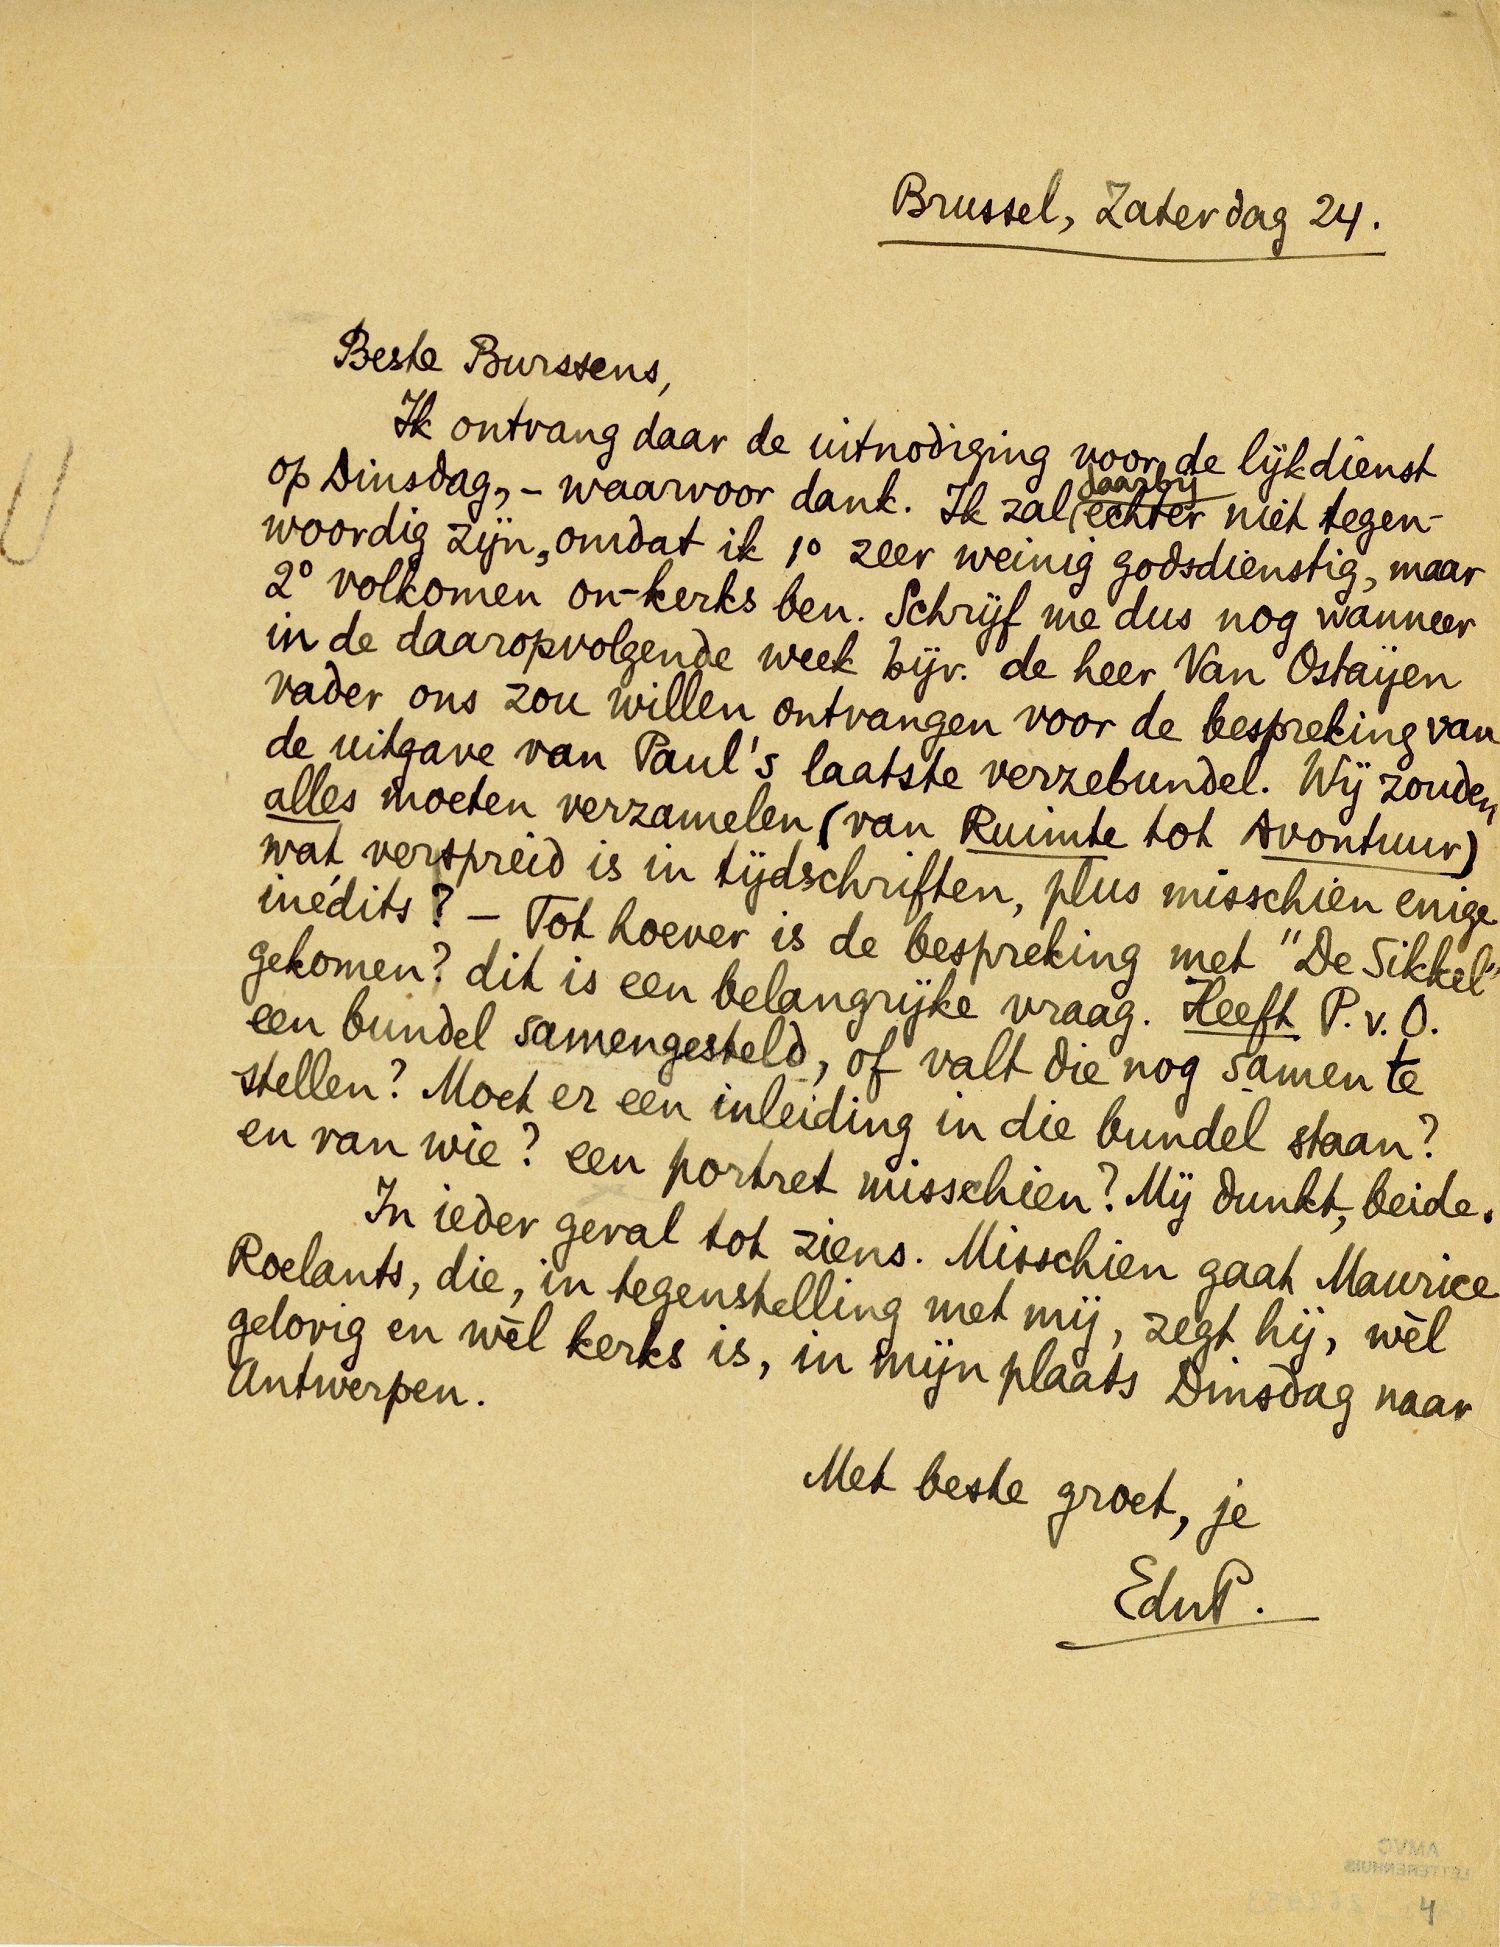 Brussel, Zaterdag 24.
Beste Burssens,
Ik ontvang daar de uitnodiging voor de lijkdienst
op Dinsdag, – waarvoor dank. Ik zal echter daarbij niet tegen-
woordig zijn, omdat ik 1° zeer weinig godsdienstig, maar
2° volkomen on-kerks ben. Schrijf me dus nog wanneer
in de daaropvolgende week bijv. de heer Van Ostaijen
vader ons zou willen ontvangen voor de bespreking van
de uitgave van Paul's laatste verzebundel. Wij zouden
alles moeten verzamelen (van Ruimte tot Avontuur)
wat verspreid is in tijdschriften, plus misschien enige
inédits? – Tot hoever is de bespreking met "De Sikkel"
gekomen? dit is een belangrijke vraag. Heeft P. v. O.
een bundel samengesteld, of valt die nog samen te
stellen? Moet er een inleiding in die bundel staan?
en van wie? een portret misschien? Mij dunkt, beide.
In ieder geval tot ziens. Misschien gaat Maurice
Roelants, die, in tegenstelling met mij, zegt hij, wèl
gelovig en wèl kerks is, in mijn plaats Dinsdag naar
Antwerpen.
Met beste groet, je
EduP.
AMVC
LETTERENHUIS
4